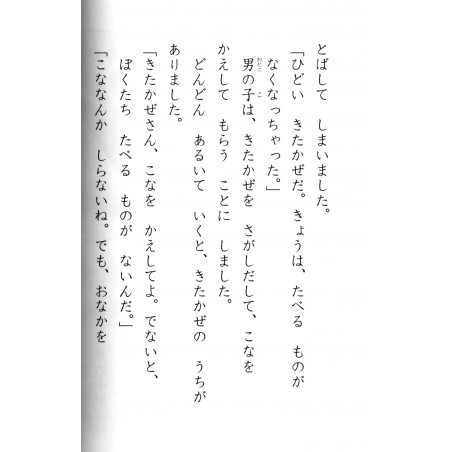 とばして しまいました。
「ひどい きたかぜだ。きょうは、たべる ものが
なくなっちゃった。」
男の子は、きたかぜを さがしだして、こなを
かえして もらう ことに しました。
どんどん あるいて いくと、きたかぜの うちが
ありました。
「きたかぜさん、こなを かえしてよ。でないと、
ぼくたち たべる ものが ないんだ。」
「こななんか しらないね。でも、おなかを